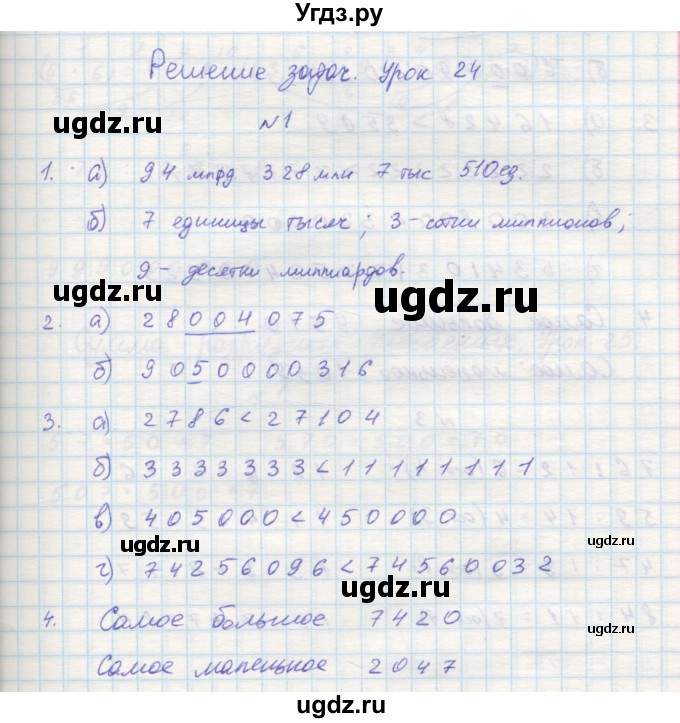 Угдз.ру
Решение задач. Урок 24
№1
1. а) 94 млрд 328 млн 7 тыс 510 ед.
б) 7 единицы тысяч; 3-сотни миллионов;
9- десятки миллиардов.
2. а) 28004075
б) 9050000316
3. а) 2786<27104
б) 3333333<111111111
в) 405000<450000
г) 74256096<74560032
4. Самое большое 7420
Самое маленькое 2047
ugdz.ru
ugdz.ru
ugdz.ru
ugdz.ru
ugdz.ru
ugdz.ru
ugdz.ru
ugdz.ru
ugdz.ru